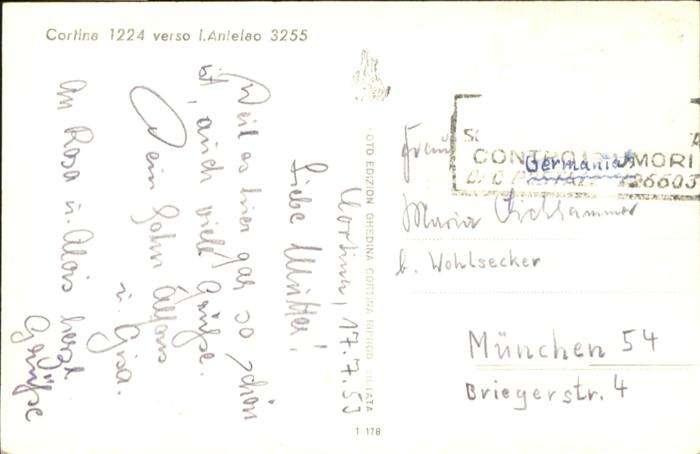 Cortina 1224 verso l'Antelao 3255
Cortina, 17.7.53
Liebe Mutter!
Weil es hier gar so schön
ist, auch viele Grüße.
Dein Sohn Alfons
u. Gisa.
An Rosa u. Alois herzl.
Grüße
FOTO EDIZIONI GHEDINA CORTINA
1 178
CONTRO TUMORI
Germania
Maria Eichhammer
b. Wohlsecker
München 54
Briegerstr. 4